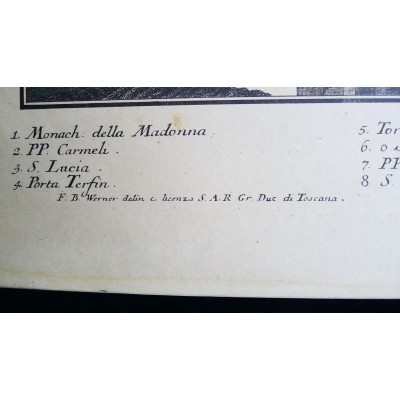 1. Monach: della Madonna.
2. PP. Carmeli.
3. S. Lucia.
4. Porta Terfin.
5. Tor
6. o
7. PP
8 S.
F. B. Werner delin e licenza S. A. R Gr. Duc di Toscana.